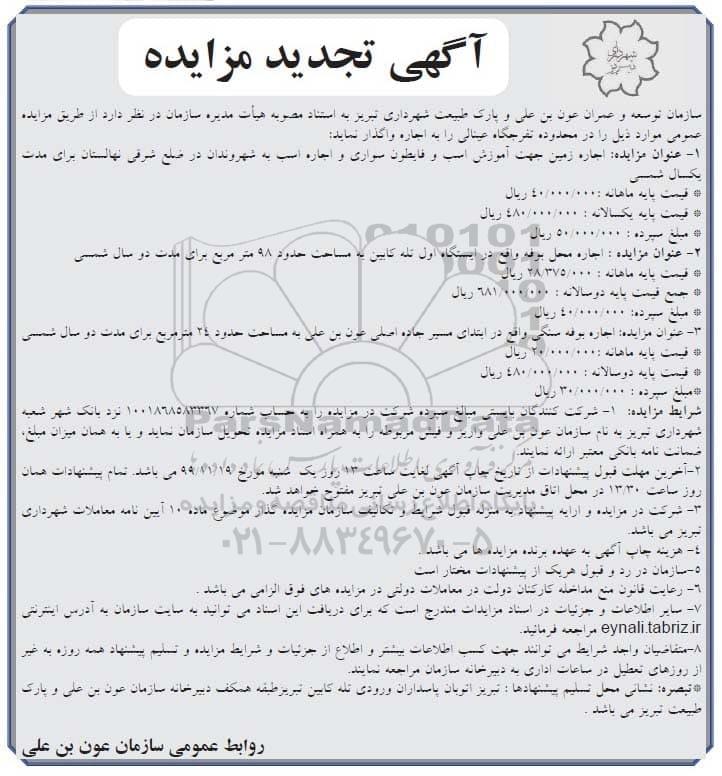 شهرداری تبریز
آگهی تجدید مزایده
سازمان توسعه و عمران عون بن علی و پارک طبیعت شهرداری تبریز به استناد مصوبه هیأت مدیره سازمان در نظر دارد از طریق مزایده
عمومی موارد ذیل را در محدوده تفرجگاه عینالی را به اجاره واگذار نماید:
۱- عنوان مزایده: اجاره زمین جهت آموزش اسب و فایطون سواری و اجاره اسب به شهروندان در ضلع شرقی نهالستان برای مدت
یکسال شمسی
* قیمت پایه ماهانه :۴۰/۰۰۰/۰۰۰ ریال
* قیمت پایه یکسالانه : ۴۸۰/۰۰۰/۰۰۰ ریال
* مبلغ سپرده : ۵۰/۰۰۰/۰۰۰ ریال
۲- عنوان مزایده : اجاره محل بوفه واقع در ایستگاه اول تله کابین به مساحت حدود ۹۸ متر مربع برای مدت دو سال شمسی
* قیمت پایه ماهانه : ۲۸/۳۷۵/۰۰۰ ریال
* جمع قیمت پایه دوسالانه : ۶۸۱/۰۰۰/۰۰۰ ریال
* مبلغ سپرده: ۴۰/۰۰۰/۰۰۰ ریال
۳- عنوان مزایده: اجاره بوفه سنگی واقع در ابتدای مسیر جاده اصلی عون بن علی به مساحت حدود ۲۴ مترمربع برای مدت دو سال شمسی
* قیمت پایه ماهانه :۲۰/۰۰۰/۰۰۰ ریال
* قیمت پایه دوسالانه : ۴۸۰/۰۰۰/۰۰۰ ریال
*مبلغ سپرده : ۳۰/۰۰۰/۰۰۰ ریال
شرایط مزایده: ۱- شرکت کنندگان بایستی مبالغ سپرده شرکت در مزایده را به حساب شماره ۱۰۰۱۸۶۸۵۸۳۳۶۷ نزد بانک شهر شعبه
شهرداری تبریز به نام سازمان عون بن علی واریز و فیش مربوطه را به همراه اسناد مزایده تحویل سازمان نماید و یا به همان میزان مبلغ،
ضمانت نامه بانکی معتبر ارائه نمایند.
۲-آخرین مهلت قبول پیشنهادات از تاریخ چاپ آگهی لغایت ساعت ۱۳ روز یک شنبه مورخ ۹۹/۱۱/۱۹ می باشد. تمام پیشنهادات همان
روز ساعت ۱۳/۳۰ در محل اتاق مدیریت سازمان عون بن علی تبریز مفتوح خواهد شد.
۳- شرکت در مزایده و ارایه پیشنهاد به منزله قبول شرایط و تکالیف سازمان مزایده گذار موضوع ماده ۱۰ آیین نامه معاملات شهرداری
تبریز می باشد.
۴- هزینه چاپ آگهی به عهده برنده مزایده ها می باشد .
۵-سازمان در رد و قبول هریک از پیشنهادات مختار است
۶- رعایت قانون منع مداخله کارکنان دولت در معاملات دولتی در مزایده های فوق الزامی می باشد .
۷- سایر اطلاعات و جزئیات در اسناد مزایدات مندرج است که برای دریافت این اسناد می توانید به سایت سازمان به آدرس اینترنتی
eynali.tabriz.ir مراجعه فرمائید.
۸-متقاضیان واجد شرایط می توانند جهت کسب اطلاعات بیشتر و اطلاع از جزئیات و شرایط مزایده و تسلیم پیشنهاد همه روزه به غیر
از روزهای تعطیل در ساعات اداری به دبیرخانه سازمان مراجعه نمایند.
*تبصره: نشانی محل تسلیم پیشنهادها : تبریز اتوبان پاسداران ورودی تله کابین تبریزطبقه همکف دبیرخانه سازمان عون بن علی و پارک
طبیعت تبریز می باشد .
روابط عمومی سازمان عون بن علی
ParsNamadData
پایگاه اطلاع رسانی مناقصه و مزایده
۰۲۱-۸۸۳۴۹۶۷۰-۵